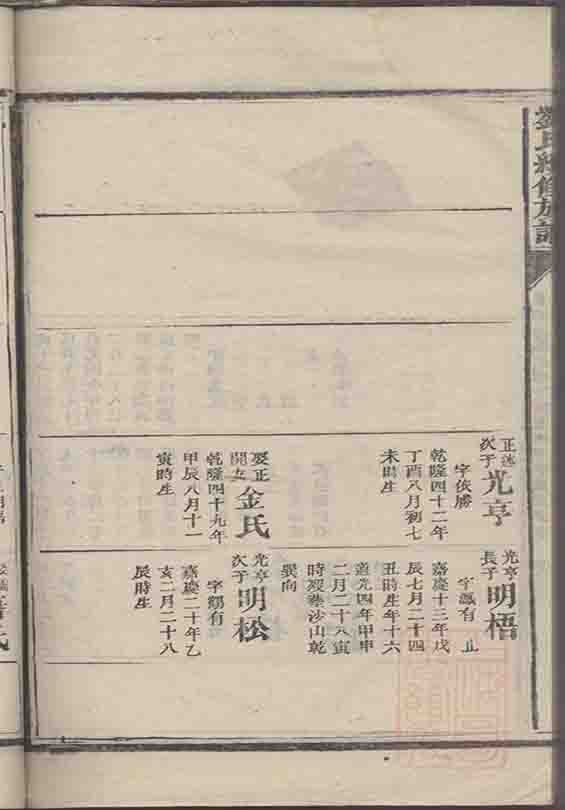 劉氏續修族譜
正述
次子
光亨
字依勝
乾隆四十二年
丁酉八月初七
未時生
娶正
開女
金氏
乾隆四十九年
甲辰八月十一
寅時生
光亨
長子
明梧
字鳳有 止
嘉慶十三年戊
辰七月二十四
丑時生年十六
道光四年甲申
二月二十八寅
時歿塟沙山乾
巽向
光亨
次子
明松
字有
嘉慶二十年乙
亥二月二十八
辰時生